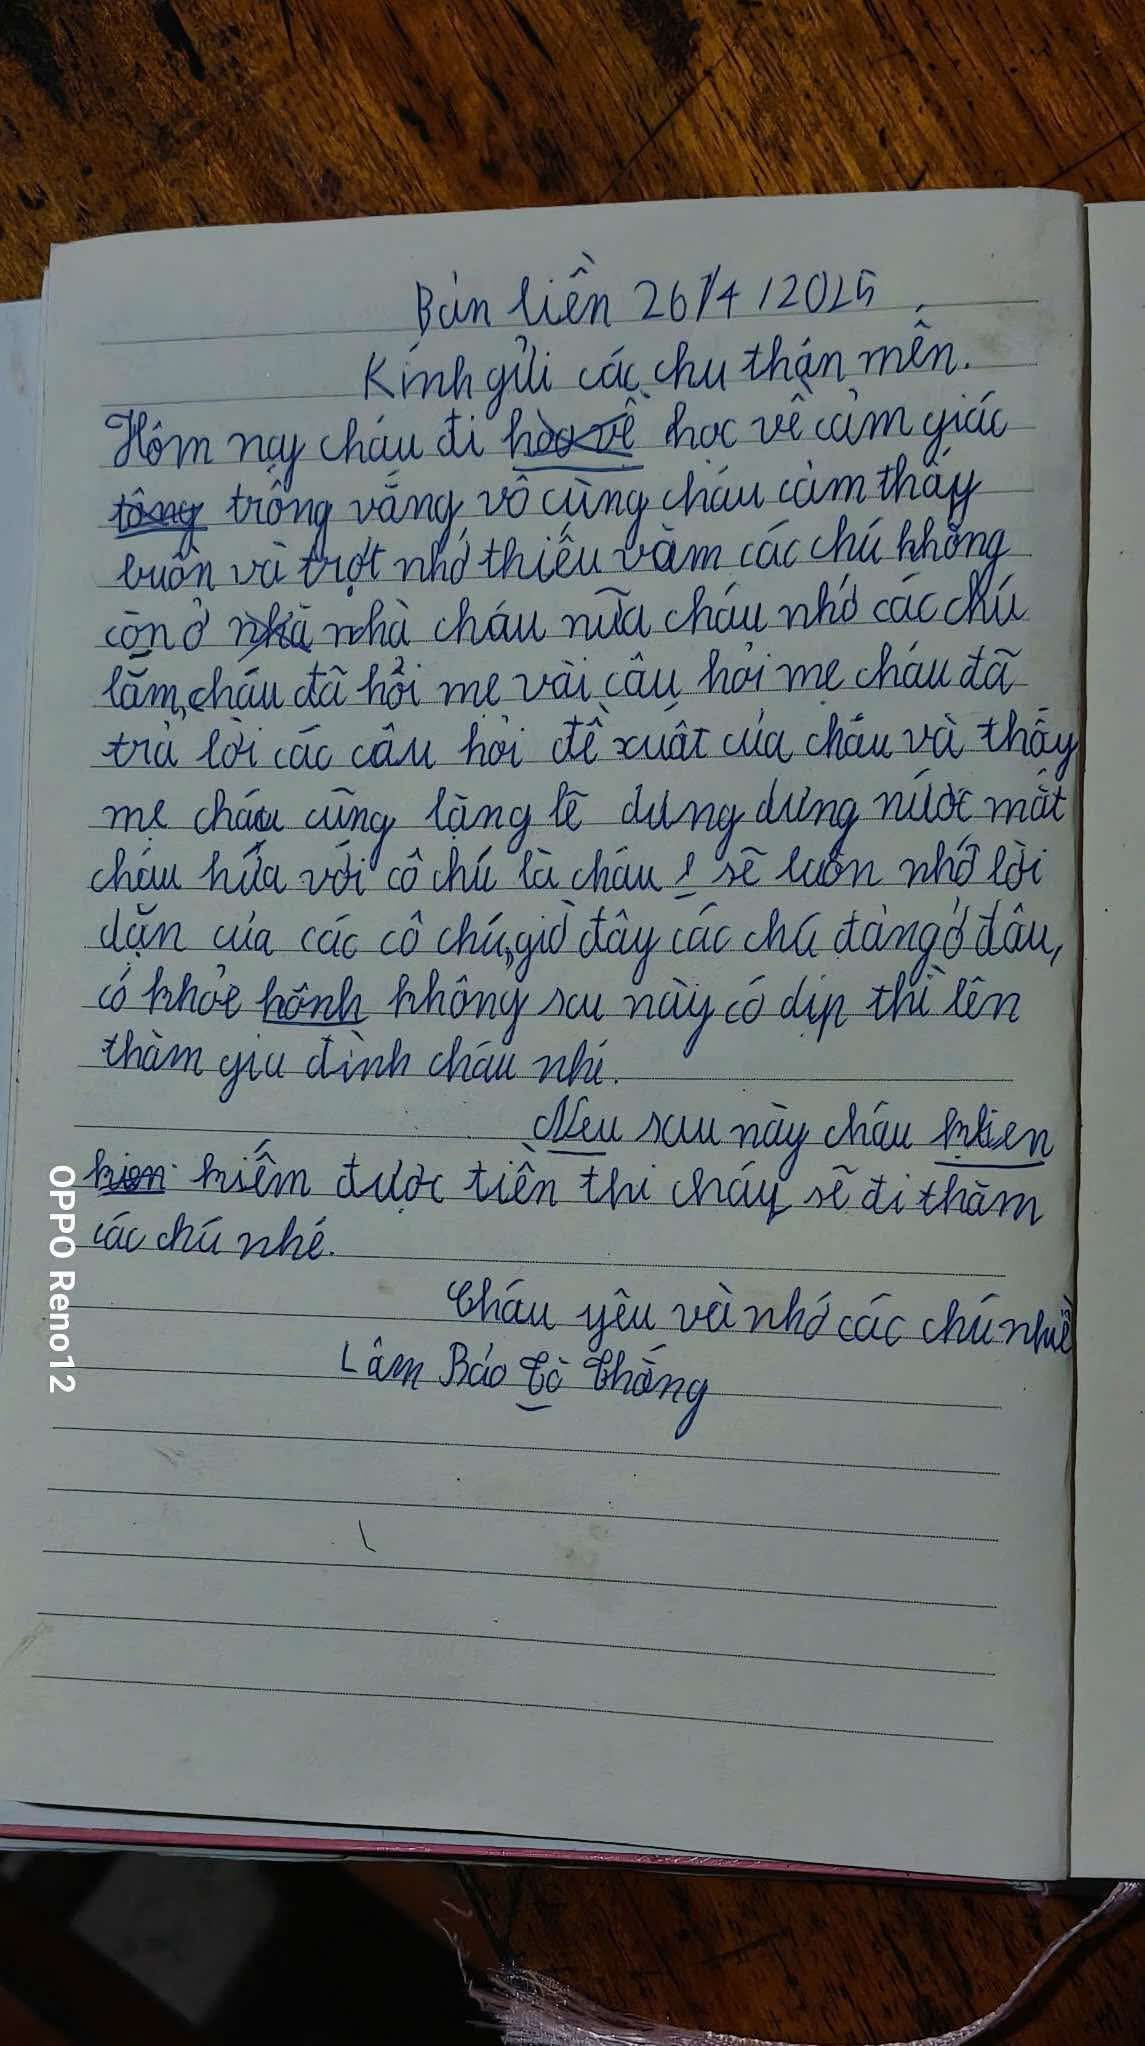 Bản liền 26/4/2025
Kính gửi các chu thân mến.
Hôm nay cháu đi học về cảm giác
trống vắng vô cùng cháu cảm thấy
buồn và trợt nhớ thiếu vắm các chú không
còn ở nhà cháu nữa cháu nhớ các chú
lắm, cháu đã hỏi mẹ vài câu hỏi mẹ cháu đã
trả lời các câu hỏi đề xuất của cháu và thấy
mẹ cháu cũng lặng lẽ dưng dưng nước mắt
cháu hứa với cô chú là cháu sẽ luôn nhớ lời
dặn của các cô chú, giờ đây các chú đang ở đâu,
có khỏe không sau này có dịp thì lên
thăm gia đình cháu nhé.
Neu sau này cháu
kiếm được tiền thì cháu sẽ đi thăm
các chú nhé.
Cháu yêu và nhớ các chú nhiề
Lâm Bảo Cò Thắng
OPPO Reno12